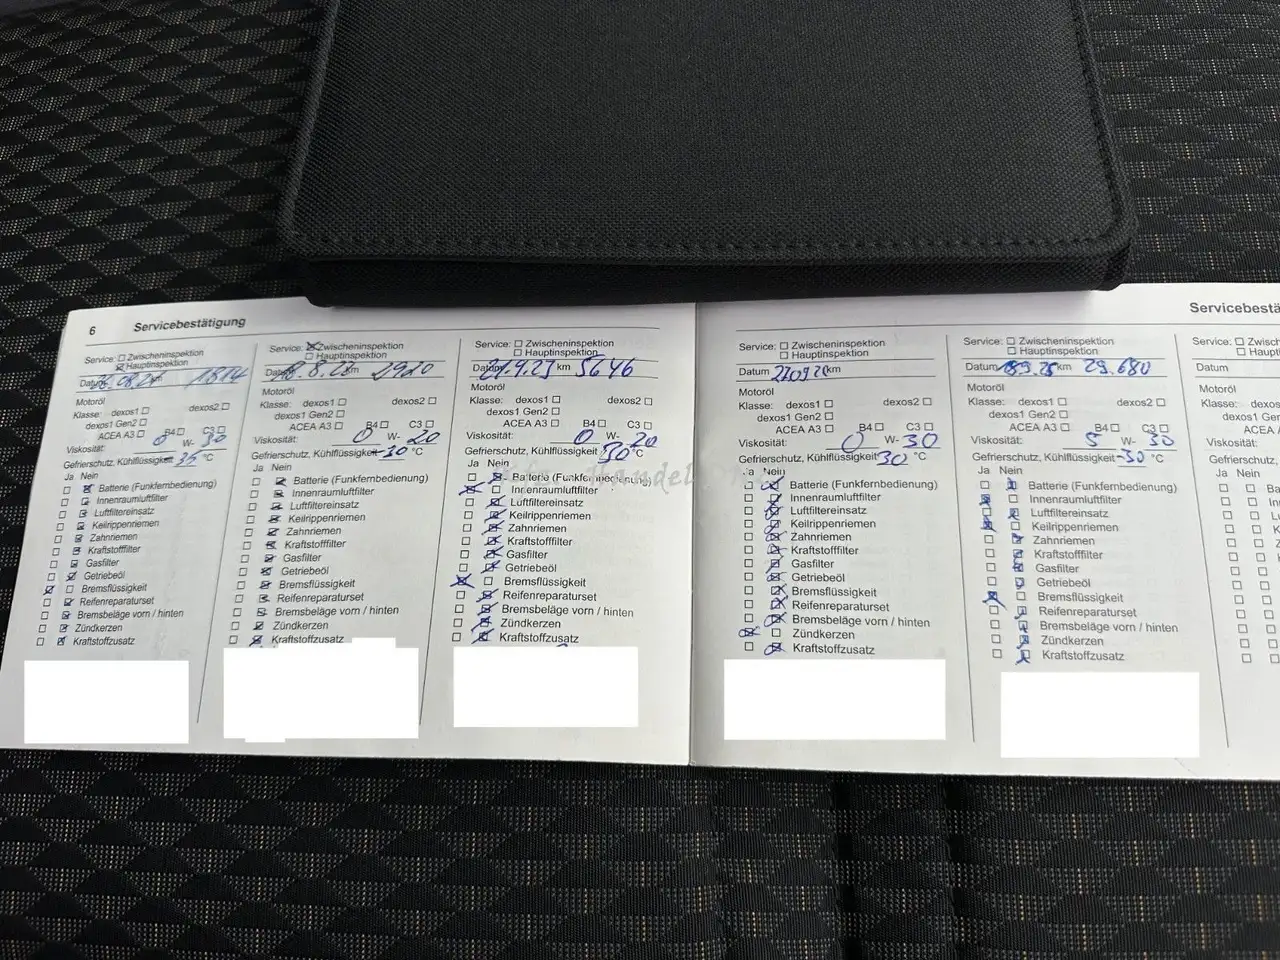 6 Servicebestätigung
Service: Zwischeninspektion
Hauptinspektion
Datum km 1814
Motoröl
Klasse: dexos1 dexos2
dexos1 Gen2
ACEA A3 B4 C3
Viskosität: 0 W- 30
Gefrierschutz, Kühlflüssigkeit 35 °C
Ja Nein
Batterie (Funkfernbedienung)
Innenraumluftfilter
Luftfiltereinsatz
Keilrippenriemen
Zahnriemen
Kraftstofffilter
Gasfilter
Getriebeöl
Bremsflüssigkeit
Reifenreparaturset
Bremsbeläge vorn / hinten
Zündkerzen
Kraftstoffzusatz
Service: Zwischeninspektion
Hauptinspektion
Datum km 2920
Motoröl
Klasse: dexos1 dexos2
dexos1 Gen2
ACEA A3 B4 C3
Viskosität: 0 W- 20
Gefrierschutz, Kühlflüssigkeit -30 °C
Ja Nein
Batterie (Funkfernbedienung)
Innenraumluftfilter
Luftfiltereinsatz
Keilrippenriemen
Zahnriemen
Kraftstofffilter
Gasfilter
Getriebeöl
Bremsflüssigkeit
Reifenreparaturset
Bremsbeläge vorn / hinten
Zündkerzen
Kraftstoffzusatz
Service: Zwischeninspektion
Hauptinspektion
Datum 21.9.23 km 5646
Motoröl
Klasse: dexos1 dexos2
dexos1 Gen2
ACEA A3 B4 C3
Viskosität: 0 W- 20
Gefrierschutz, Kühlflüssigkeit 30 °C
Ja Nein
Batterie (Funkfernbedienung)
Innenraumluftfilter
Luftfiltereinsatz
Keilrippenriemen
Zahnriemen
Kraftstofffilter
Gasfilter
Getriebeöl
Bremsflüssigkeit
Reifenreparaturset
Bremsbeläge vorn / hinten
Zündkerzen
Kraftstoffzusatz
Servicebestä
Service: Zwischeninspektion
Hauptinspektion
Datum km
Motoröl
Klasse: dexos1 dexos2
dexos1 Gen2
ACEA A3 B4 C3
Viskosität: 0 W- 30
Gefrierschutz, Kühlflüssigkeit 30 °C
Ja Nein
Batterie (Funkfernbedienung)
Innenraumluftfilter
Luftfiltereinsatz
Keilrippenriemen
Zahnriemen
Kraftstofffilter
Gasfilter
Getriebeöl
Bremsflüssigkeit
Reifenreparaturset
Bremsbeläge vorn / hinten
Zündkerzen
Kraftstoffzusatz
Service: Zwischeninspektion
Hauptinspektion
Datum km 29.680
Motoröl
Klasse: dexos1 dexos2
dexos1 Gen2
ACEA A3 B4 C3
Viskosität: 5 W- 30
Gefrierschutz, Kühlflüssigkeit -30 °C
Ja Nein
Batterie (Funkfernbedienung)
Innenraumluftfilter
Luftfiltereinsatz
Keilrippenriemen
Zahnriemen
Kraftstofffilter
Gasfilter
Getriebeöl
Bremsflüssigkeit
Reifenreparaturset
Bremsbeläge vorn / hinten
Zündkerzen
Kraftstoffzusatz
Service: Zw
Hau
Datum
Motoröl
Klasse: dexos
dexos1 G
ACEA
Viskosität:
Gefrierschutz, Kü
Ja Nein
Ba
In
Lu
Ke
Za
Kr
Ga
Ge
Br
Re
Br
Zü
Kr